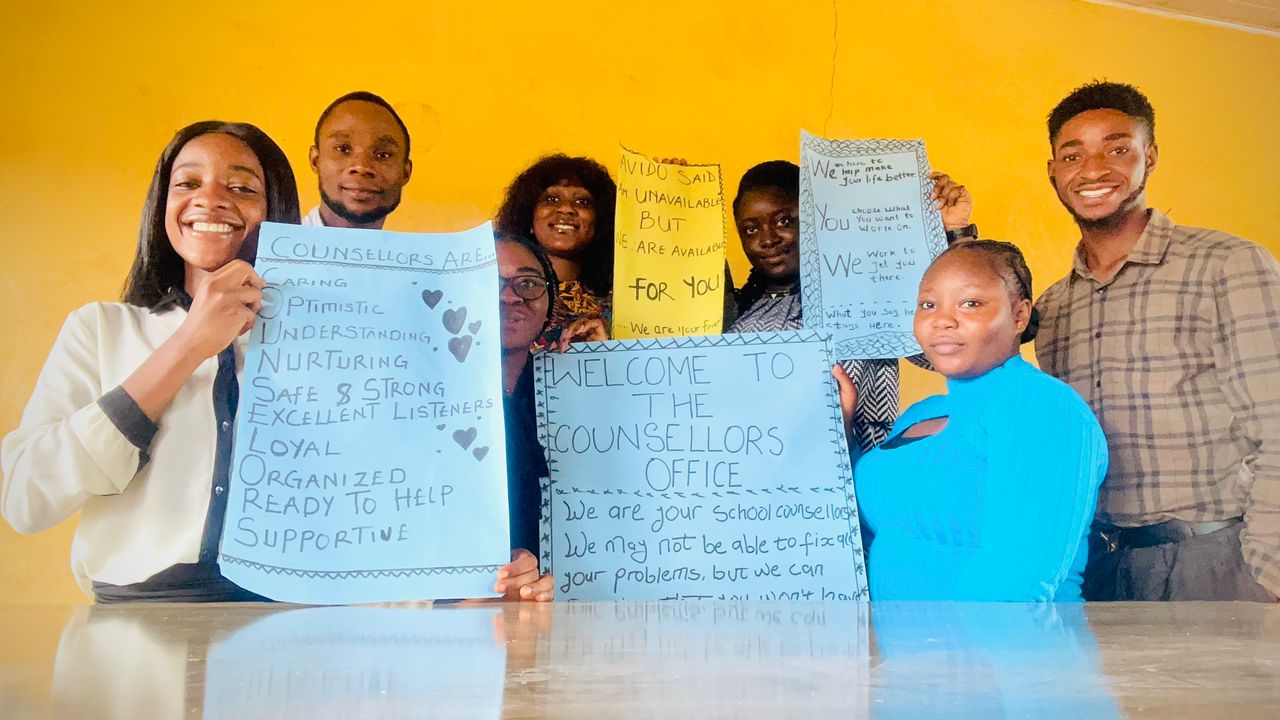 COUNSELLORS ARE...
CARING
OPTIMISTIC
UNDERSTANDING
NURTURING
SAFE & STRONG
EXCELLENT LISTENERS
LOYAL
ORGANIZED
READY TO HELP
SUPPORTIVE
AVIDO SAID
AM UNAVAILABLE
BUT
WE ARE AVAILABLE
FOR YOU
.... We are your
We are here to
help make
your life better
YOU choose what
you want to
work on.
We work to
get you
there.
What you say
stays Here.
WELCOME TO
THE
COUNSELLORS
OFFICE
We are your school counsellors
We may not be able to fix all
your problems, but we can
that you won't have